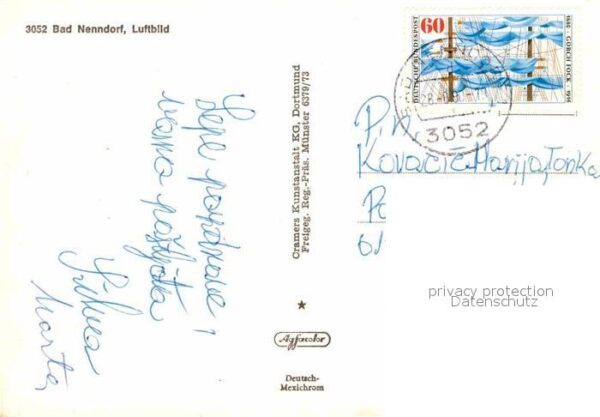 3052 Bad Nenndorf, Luftbild
Lepe pozdrave i
mnogo poljubaca
Silva
Marta
Cramers Kunstanstalt KG. Dortmund
Freigeg. Reg.-Präs. Münster 6379/73
Agfacolor
Deutsch-
Mexichrom
60
DEUTSCHE BUNDESPOST
1880 · GORCH FOCK · 1916
3052
P. n.
Kovačić Marija, Tonka
privacy protection
Datenschutz